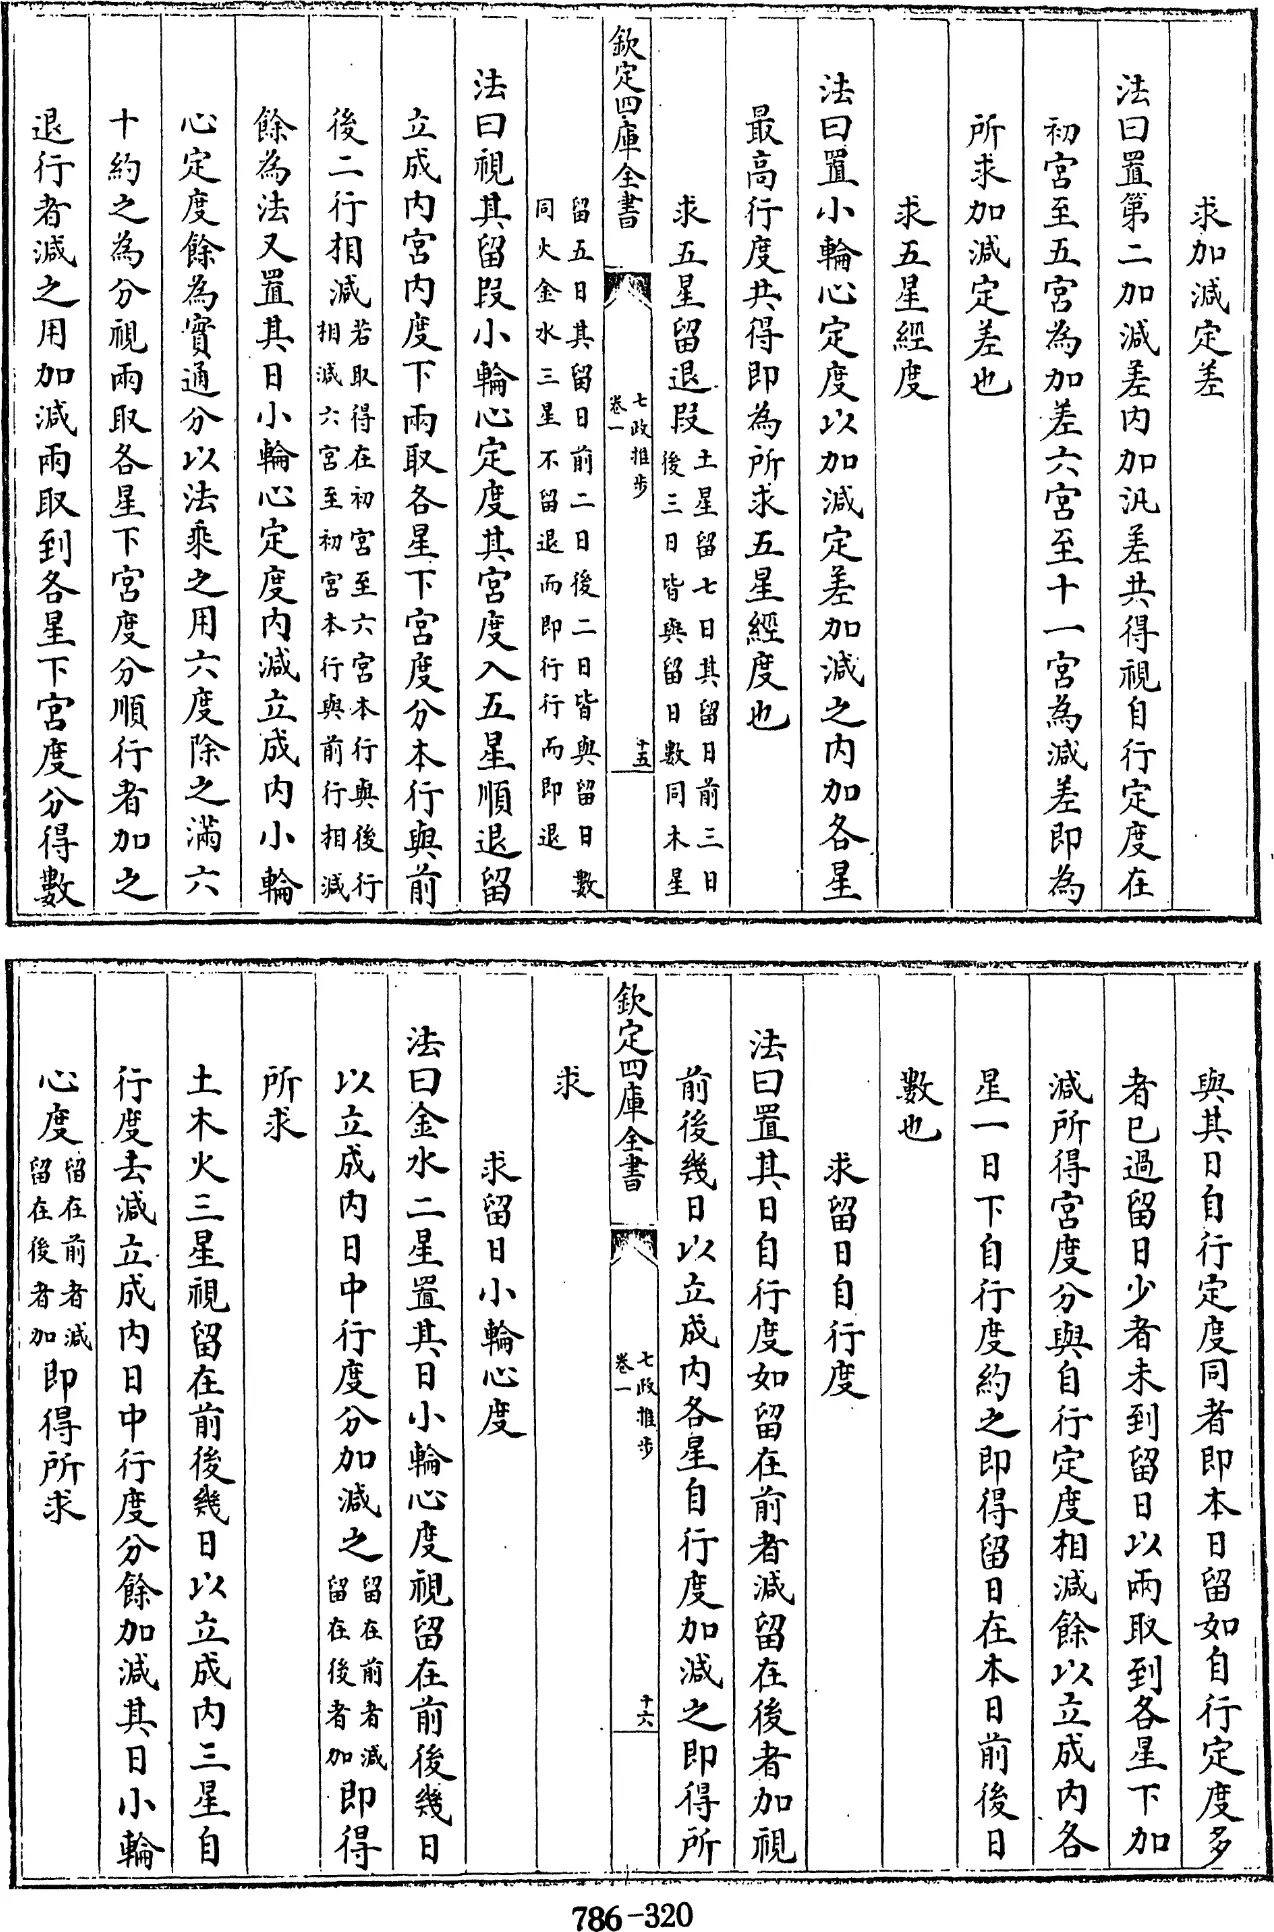 求加減定差
法曰置第二加減差内加汎差共得視自行定度在
初宮至五宮為加差六宮至十一宮為減差即為
所求加減定差也
求五星經度
法曰置小輪心定度以加減定差加減之内加各星
最高行度共得即為所求五星經度也
求五星留退段土星留七日其留日前三日
後三日皆與留日數同木星
欽定四庫全書
七政推步
卷一
十五
留五日其留日前二日後二日皆與留日數
同火金水三星不留退而即行行而即退
法曰視其留段小輪心定度其宮度入五星順退留
立成内宮内度下兩取各星下宮度分本行與前
後二行相減若取得在初宮至六宮本行與後行
相減六宮至初宮本行與前行相減
餘為法又置其日小輪心定度内減立成内小輪
心定度餘為實通分以法乘之用六度除之滿六
十約之為分視兩取各星下宮度分順行者加之
退行者減之用加減兩取到各星下宮度分得數
與其日自行定度同者即本日留如自行定度多
者已過留日少者未到留日以兩取到各星下加
減所得宮度分與自行定度相減餘以立成内各
星一日下自行度約之即得留日在本日前後日
數也
求留日自行度
法曰置其日自行度如留在前者減留在後者加視
前後幾日以立成内各星自行度加減之即得所
欽定四庫全書
七政推步
卷一
十六
求
求留日小輪心度
法曰金水二星置其日小輪心度視留在前後幾日
以立成内日中行度分加減之留在前者減
留在後者加即得
所求
土木火三星視留在前後幾日以立成内三星自
行度去減立成内日中行度分餘加減其日小輪
心度留在前者減
留在後者加即得所求
786-320